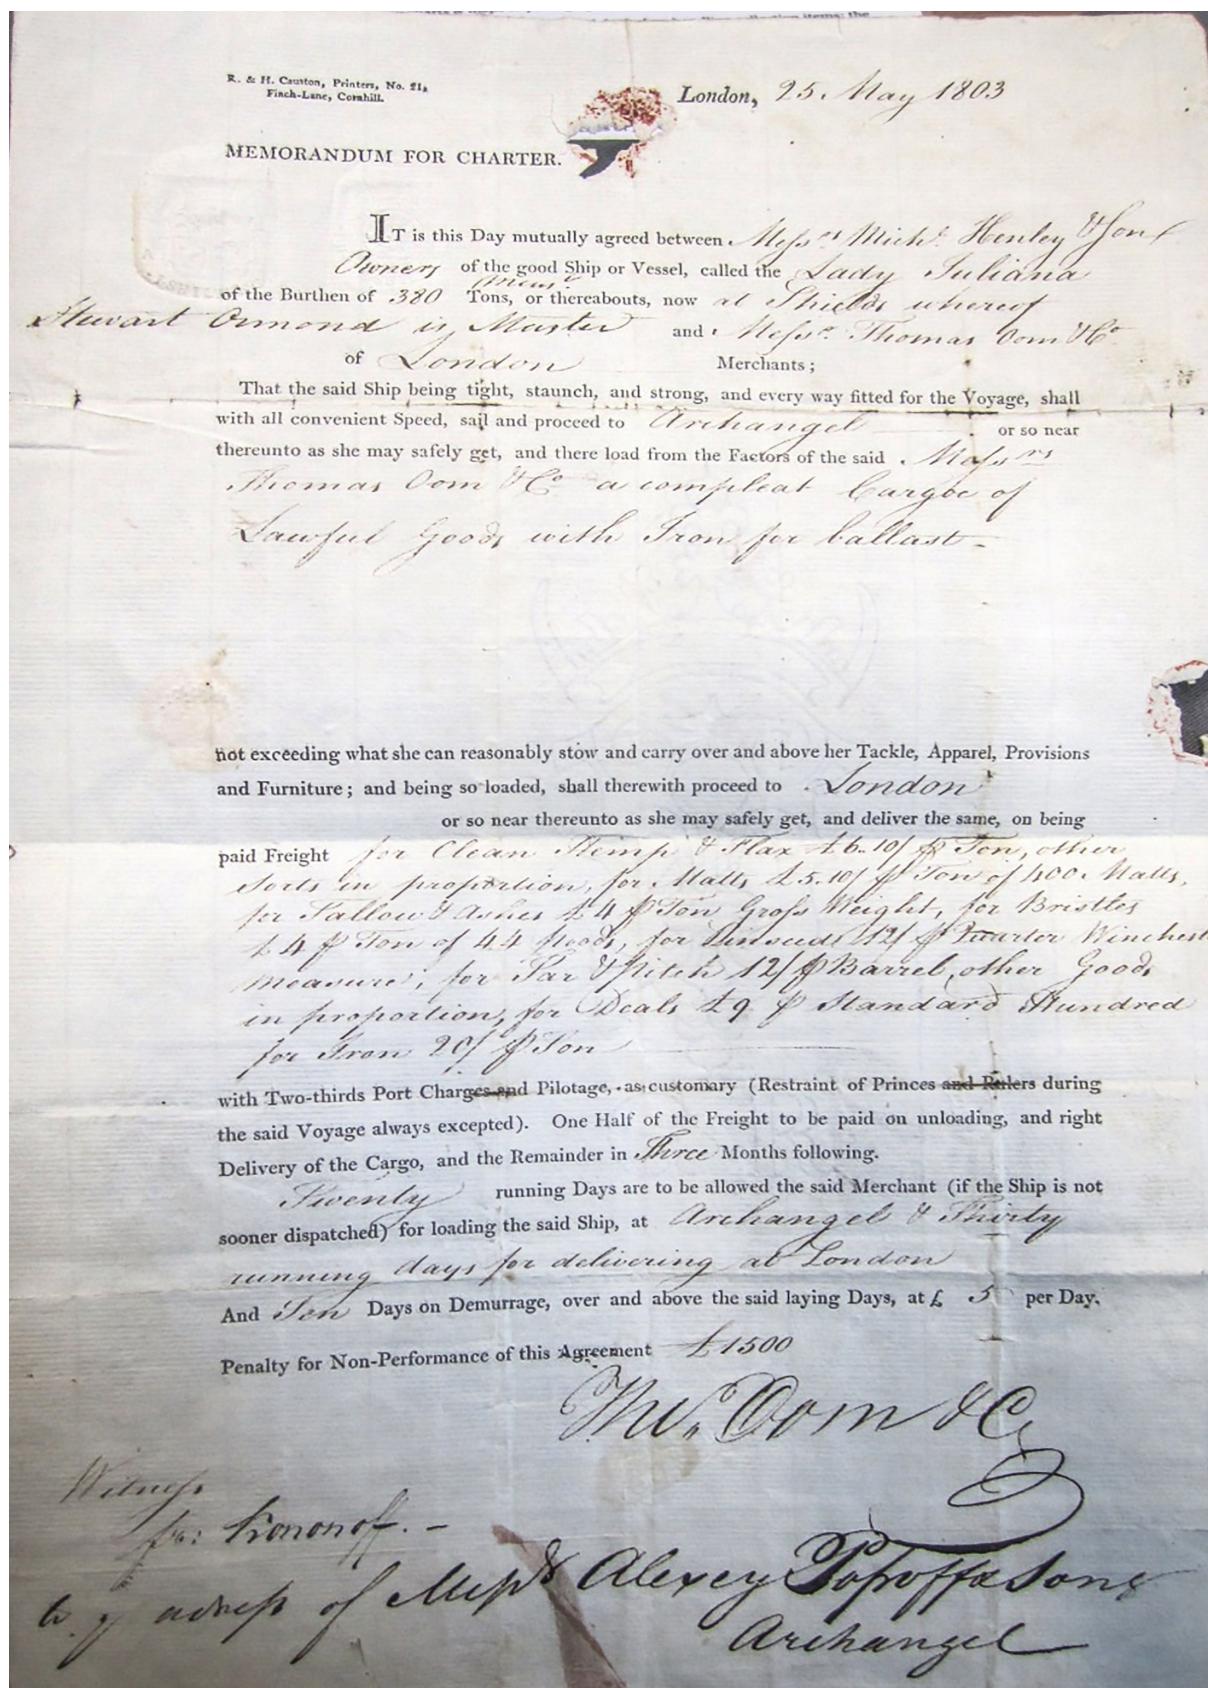 R. & H. Causton, Printers, No. 21,
Finch-Lane, Cornhill.
London, 25 May 1803
MEMORANDUM FOR CHARTER.
IT is this Day mutually agreed between Messrs Michl Henley & Son
Owners of the good Ship or Vessel, called the Lady Juliana
of the Burthen of 380 Tons, or thereabouts, now at Shields whereof
Stewart Ormond is Master and Messrs Thomas Oom & Co
of London Merchants;
That the said Ship being tight, staunch, and strong, and every way fitted for the Voyage, shall
with all convenient Speed, sail and proceed to Archangel or so near
thereunto as she may safely get, and there load from the Factors of the said Messrs
Thomas Oom & Co a compleat Cargoe of
Lawful Goods with Iron for ballast -
not exceeding what she can reasonably stow and carry over and above her Tackle, Apparel, Provisions
and Furniture; and being so loaded, shall therewith proceed to London
or so near thereunto as she may safely get, and deliver the same, on being
paid Freight for Clean Hemp & Flax £6.10/ ⅌ Ton, other
sorts in proportion, for Matts £5.10/ ⅌ Ton of 400 Matts,
for Tallow & Ashes £4 ⅌ Ton Gross Weight, for Bristles
£4 ⅌ Ton of 44 Poods, for Linseed 12/ ⅌ Quarter Winchest
measure, for Tar & Pitch 12/ ⅌ Barrel, other Goods
in proportion, for Deals £9 ⅌ Standard Hundred
for Iron 20/ ⅌ Ton
with Two-thirds Port Charges and Pilotage, as customary (Restraint of Princes and Rulers during
the said Voyage always excepted). One Half of the Freight to be paid on unloading, and right
Delivery of the Cargo, and the Remainder in Three Months following.
Twenty running Days are to be allowed the said Merchant (if the Ship is not
sooner dispatched) for loading the said Ship, at Archangel & Thirty
running days for delivering at London
And Ten Days on Demurrage, over and above the said laying Days, at £ 5 per Day.
Penalty for Non-Performance of this Agreement £1500
Thos Oom & Co
Witness
Kononoff. -
adress of Messrs Alexey Popoff & Sons
Archangel